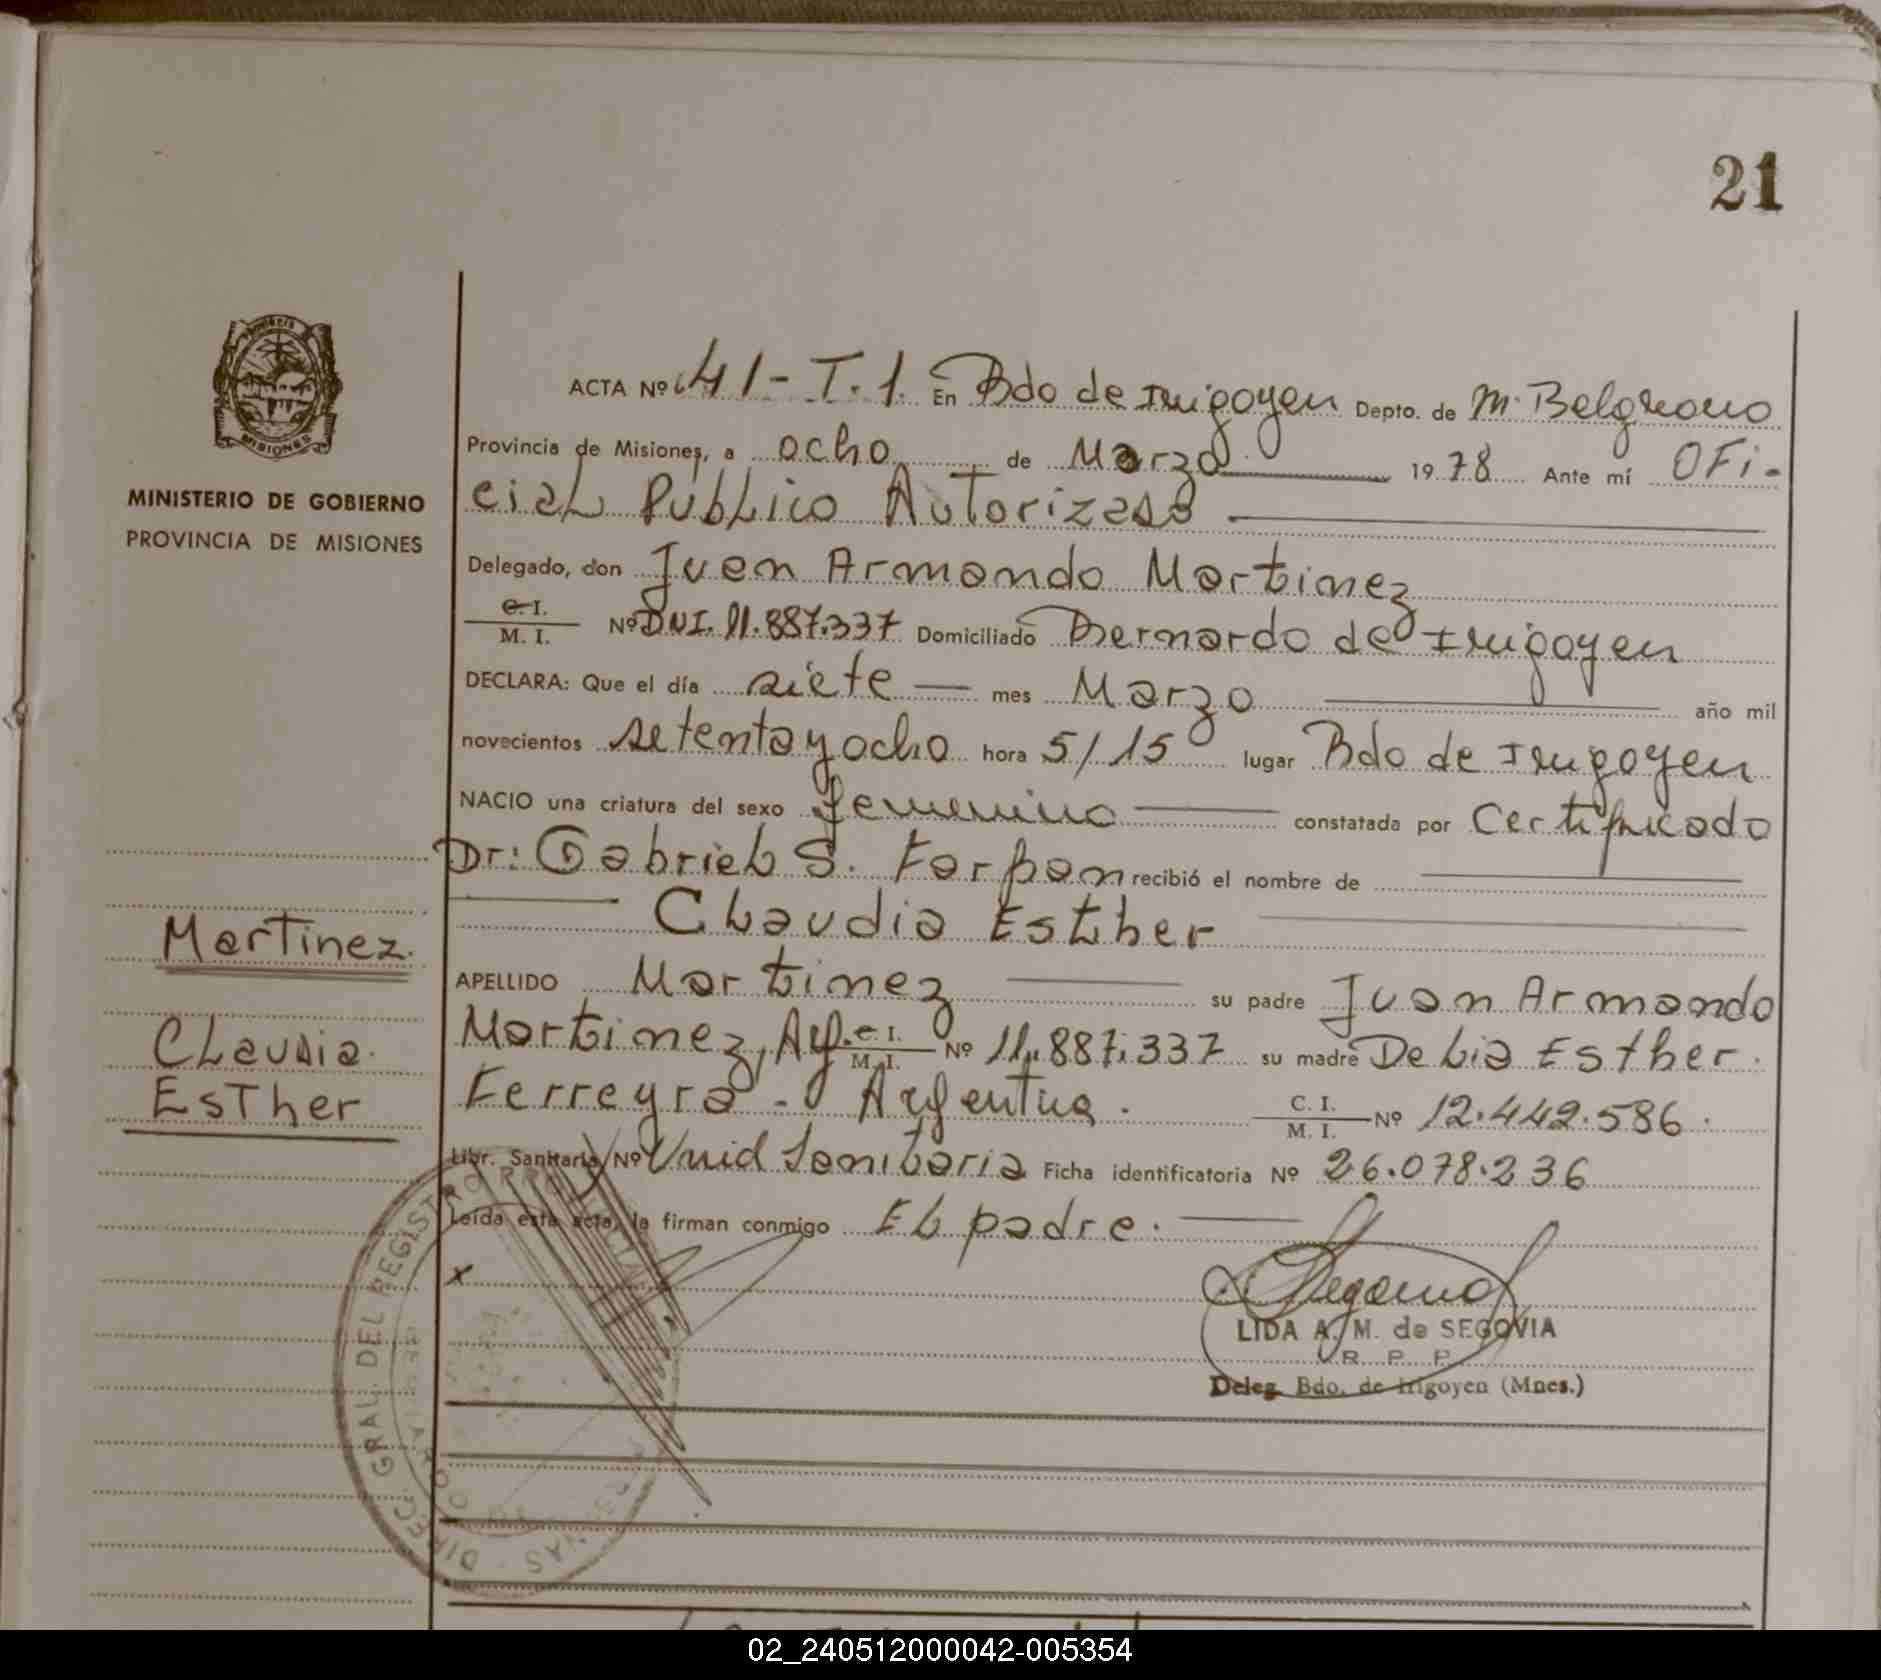 21
MISIONES
MINISTERIO DE GOBIERNO
PROVINCIA DE MISIONES
Martinez.
CLaudia.
EsTher
ACTA Nº 41-T.1. En Bdo de Irigoyen Depto. de M. Belgrano
Provincia de Misiones, a ocho de Marzo 1978 Ante mí OFi-
ciaL PúbLico AuTorizado
Delegado, don Juan Armando Martinez
C. I. / M. I. Nº DNI. 11.887.337 Domiciliado Bernardo de Irigoyen
DECLARA: Que el día siete mes Marzo año mil
novecientos setenta y ocho hora 5/15 lugar Bdo de Irigoyen
NACIO una criatura del sexo femenino constatada por Certificado
Dr: GabrieL S. recibió el nombre de
CLaudia Esther
APELLIDO Martinez su padre Juan Armando
Martinez, Arg. C. I. / M. I. Nº 11.887.337 su madre DeLia Esther.
Ferreyra - Argentina. C. I. / M. I. Nº 12.442.586.
Libr. Sanitaria Nº Unid Sanitaria Ficha identificatoria Nº 26.078.236
Leída esta acta, la firman conmigo EL padre.
x
Segovia
LIDA A. M. de SEGOVIA
R. P. P.
Deleg. Bdo. de Irigoyen (Mnes.)
DIREC. GRAL. DEL REGISTRO
02_240512000042-005354